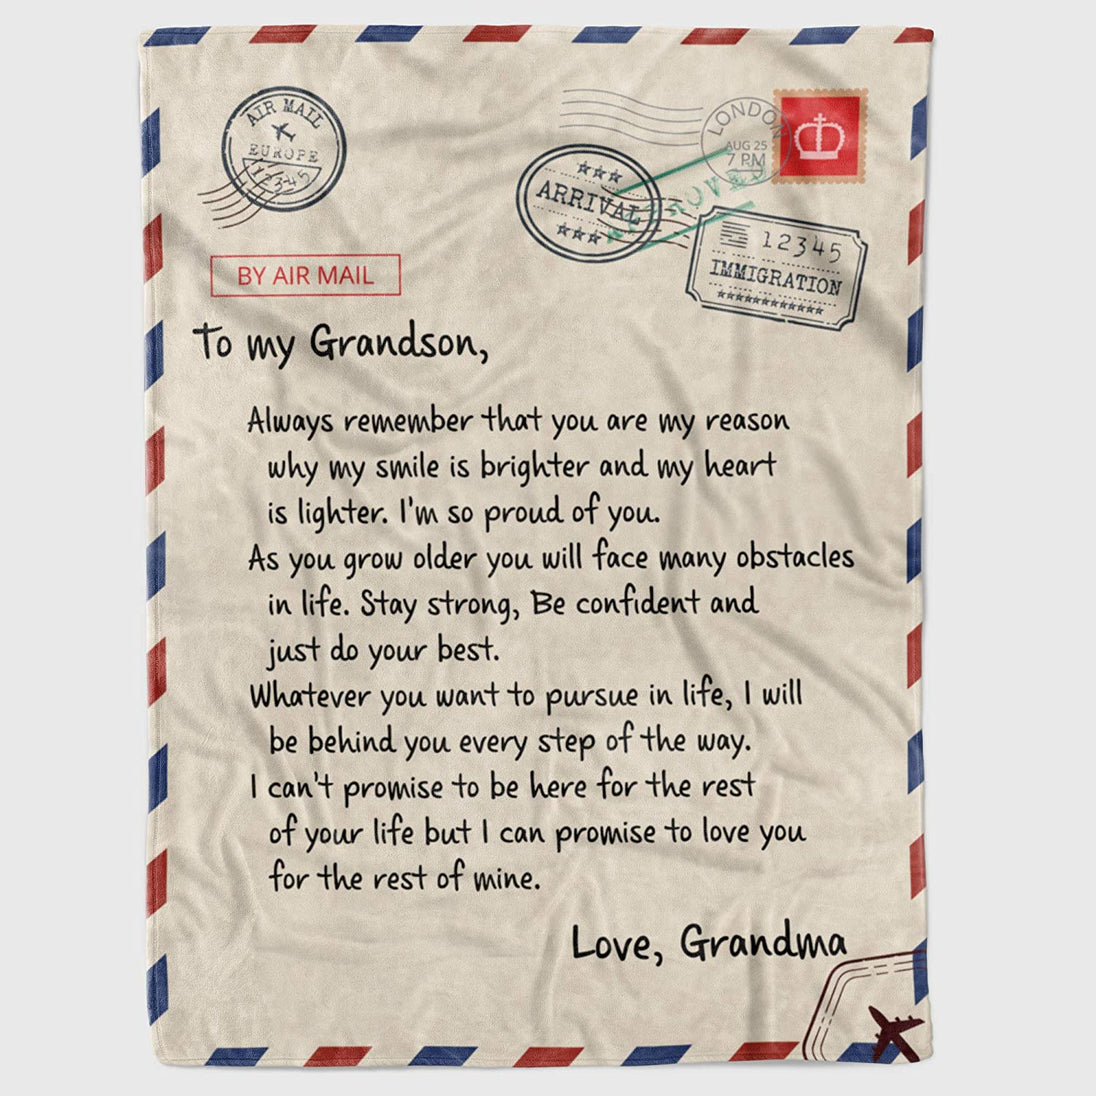 AIR MAIL
EUROPE
12345
LONDON
AUG 25
7 PM
ARRIVAL
12345
IMMIGRATION
BY AIR MAIL
To my Grandson,
Always remember that you are my reason
why my smile is brighter and my heart
is lighter. I'm so proud of you.
As you grow older you will face many obstacles
in life. Stay strong, Be confident and
just do your best.
Whatever you want to pursue in life, I will
be behind you every step of the way.
I can't promise to be here for the rest
of your life but I can promise to love you
for the rest of mine.
Love, Grandma